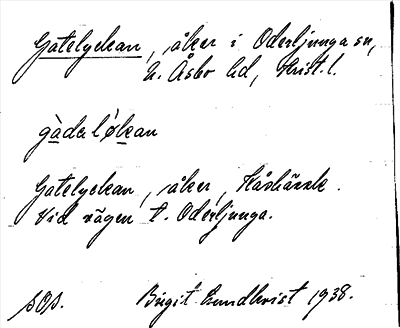 Gatelyckan, åker i Oderljunga sn,
N. Åsbo hd, Krist. l.
gàdəlỳkan
Gatelyckan, åker,
Vid vägen t. Oderljunga.
sOp. Birgit Lundkvist 1938.